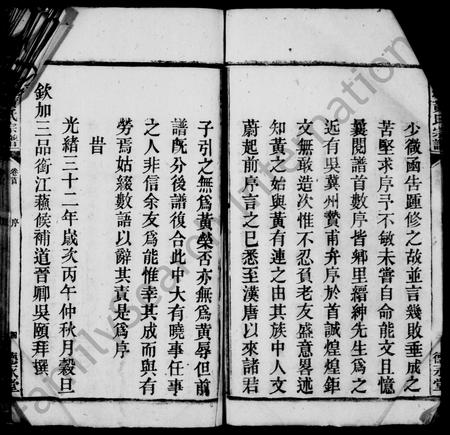 少微函告踵修之故並言幾敗垂成之
苦堅求序予不敏未嘗自命能文且憶
曩閱譜首數序皆鄉里縉紳先生爲之
近有吳冀州贊甫弁序於首誠煌煌鉅
文無敢造次惟不忍負老友盛意畧述
知黄之始與黄有連之由其族中人文
蔚起前序言之已悉至漢唐以來諸君
子引之無爲黄榮否亦無爲黄辱但前
譜既分後譜復合此中大有曉事任事
之人非信余友爲能惟幸其成而與有
勞焉姑綴數語以辭其責是爲序
旹
光緒三十二年歲次丙午仲秋月穀旦
欽加三品銜江蘇候補道晉卿吳頤拜撰
氏宗譜
卷首
序
德永堂
FamilySearch International